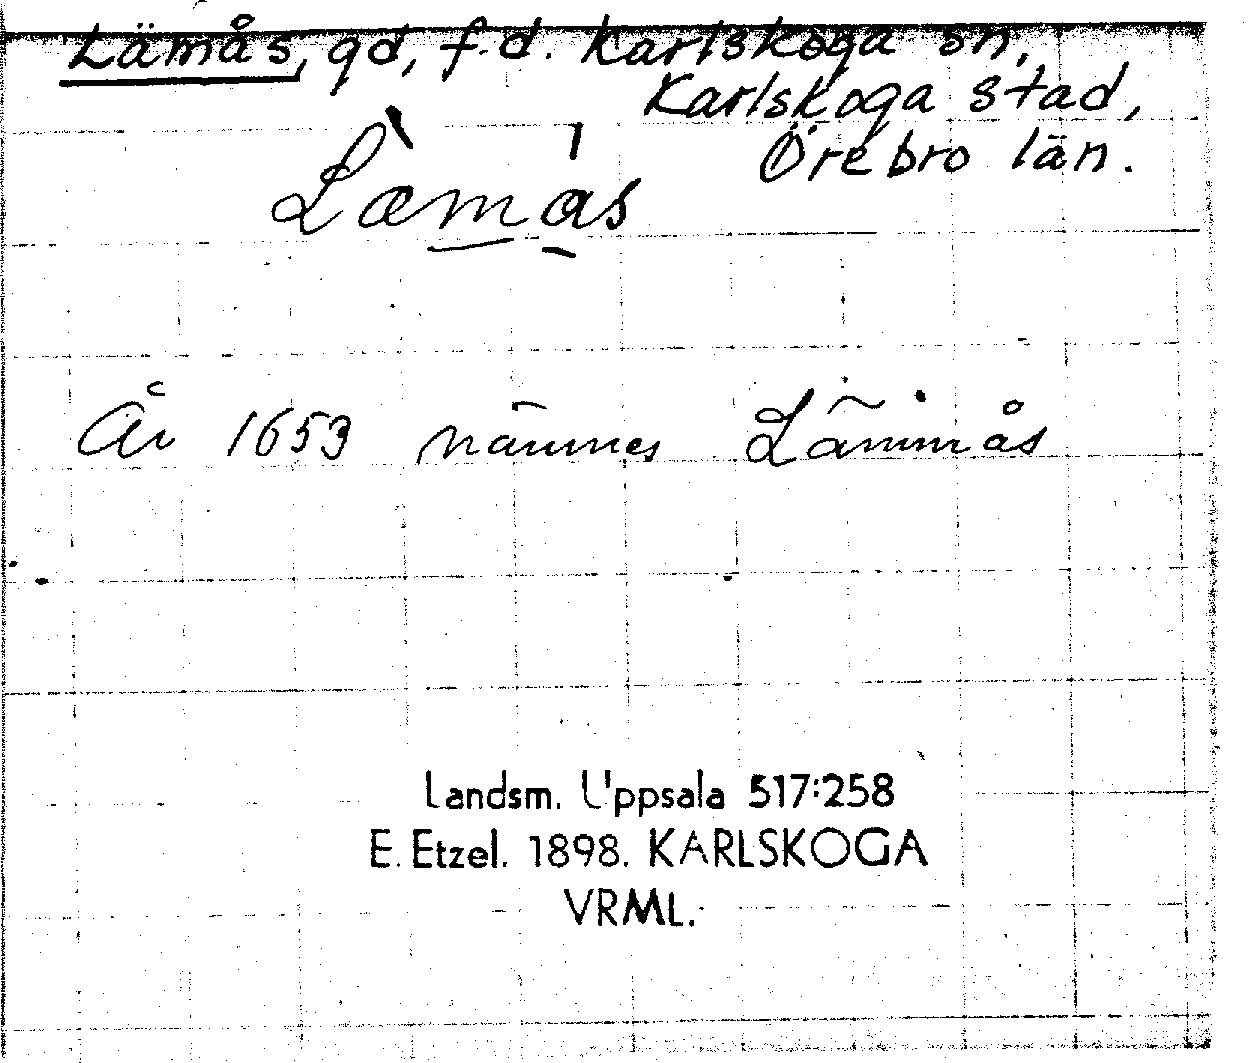 Lämås, gd, f.d. Karlskoga sn,
Karlskoga stad,
Örebro län.
Læmås
År 1653 nämnes Lämmås
Landsm. Uppsala 517:258
E. Etzel. 1898. KARLSKOGA
VRML.